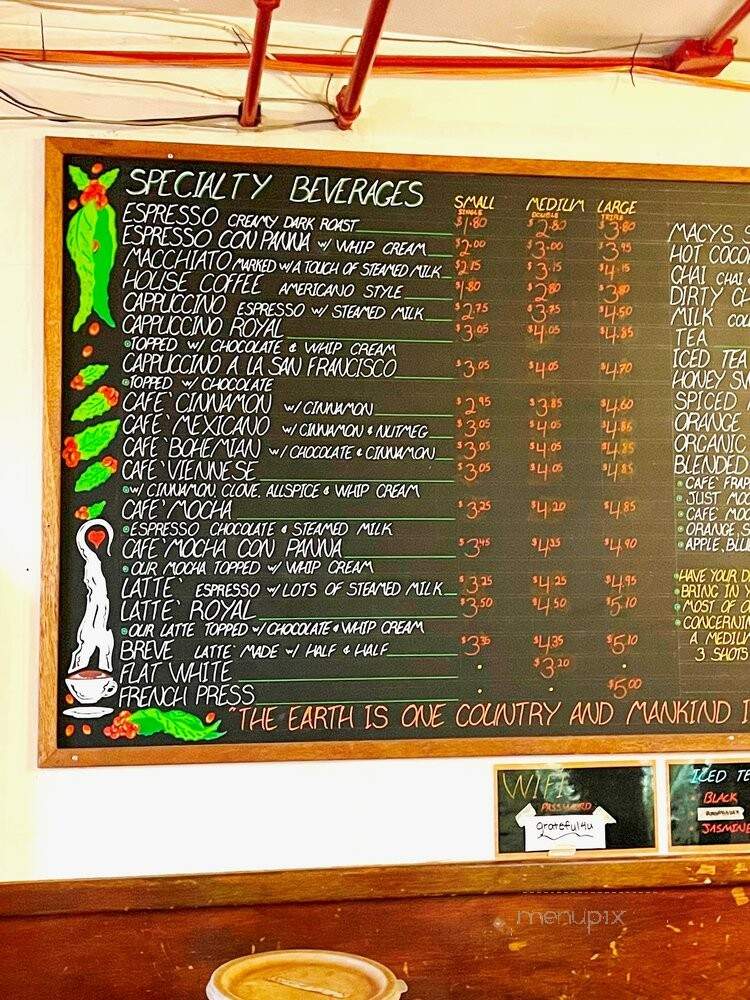 SPECIALTY BEVERAGES SMALL MEDIUM LARGE
SINGLE DOUBLE TRIPLE
ESPRESSO CREAMY DARK ROAST $1.80 $2.80 $3.80
ESPRESSO CON PANNA w/ WHIP CREAM $2.00 $3.00 $3.95
MACCHIATO MARKED w/A TOUCH OF STEAMED MILK $2.15 $3.15 $4.15
HOUSE COFFEE AMERICANO STYLE $1.80 $2.80 $3.80
CAPPUCCINO ESPRESSO w/ STEAMED MILK $2.75 $3.75 $4.50
CAPPUCCINO ROYAL $3.05 $4.05 $4.85
TOPPED w/ CHOCOLATE & WHIP CREAM
CAPPUCCINO A LA SAN FRANCISCO $3.05 $4.05 $4.70
TOPPED w/ CHOCOLATE
CAFE` CINNAMON w/ CINNAMON $2.95 $3.85 $4.60
CAFE` MEXICANO w/ CINNAMON & NUTMEG $3.05 $4.05
CAFE` BOHEMIAN w/ CHOCOLATE & CINNAMON $3.05 $4.05 $4.85
CAFE` VIENNESE $3.05 $4.05 $4.85
w/ CINNAMON, CLOVE, ALLSPICE & WHIP CREAM
CAFE` MOCHA $3.25 $4.20 $4.85
ESPRESSO CHOCOLATE & STEAMED MILK
CAFE` MOCHA CON PANNA $3.45 $4.35 $4.90
OUR MOCHA TOPPED w/ WHIP CREAM
LATTE` ESPRESSO w/ LOTS OF STEAMED MILK $3.25 $4.25 $4.95
LATTE` ROYAL $3.50 $4.50 $5.10
OUR LATTE TOPPED w/ CHOCOLATE & WHIP CREAM
BREVE LATTE` MADE w/ HALF & HALF $3.35 $4.35 $5.10
FLAT WHITE $3.20
FRENCH PRESS $5.00
"THE EARTH IS ONE COUNTRY AND MANKIND I
MACYS S
HOT COCO
CHAI CHAI
DIRTY C
MILK
TEA
ICED TEA
HONEY SW
SPICED
ORANGE
ORGANIC
BLENDED
CAFE` FRAP
JUST MO
CAFE` MOC
ORANGE, S
APPLE, BLU
HAVE YOUR D
BRING IN Y
MOST OF
CONCERNIN
A MEDIU
3 SHOTS
WIFI
PASSWORD
grateful4u
ICED TE
BLACK
JASMINE
menupix